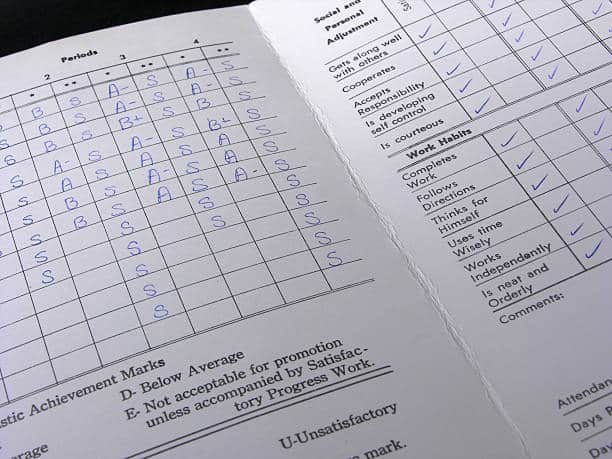 Periods
2 3 4
* ** * ** * **
B S A- S A- S
S B S A- S A- S
S B S B+ S B S
S A- S A- S B+ S
S A S A S A S
S B S A- S A S
S B S A S A- S
S S S S
S S S
S S
S S
Achievement Marks
D- Below Average
E- Not acceptable for promotion
unless accompanied by Satisfac-
tory Progress Work.
U-Unsatisfactory
mark.
Social and
Personal
Adjustment
Gets along well
with others
Cooperates
Accepts
Responsibility
Is developing
self control
Is courteous
Work Habits
Completes
Work
Follows
Directions
Thinks for
Himself
Uses time
Wisely
Works
Independently
Is neat and
Orderly
Comments:
Days